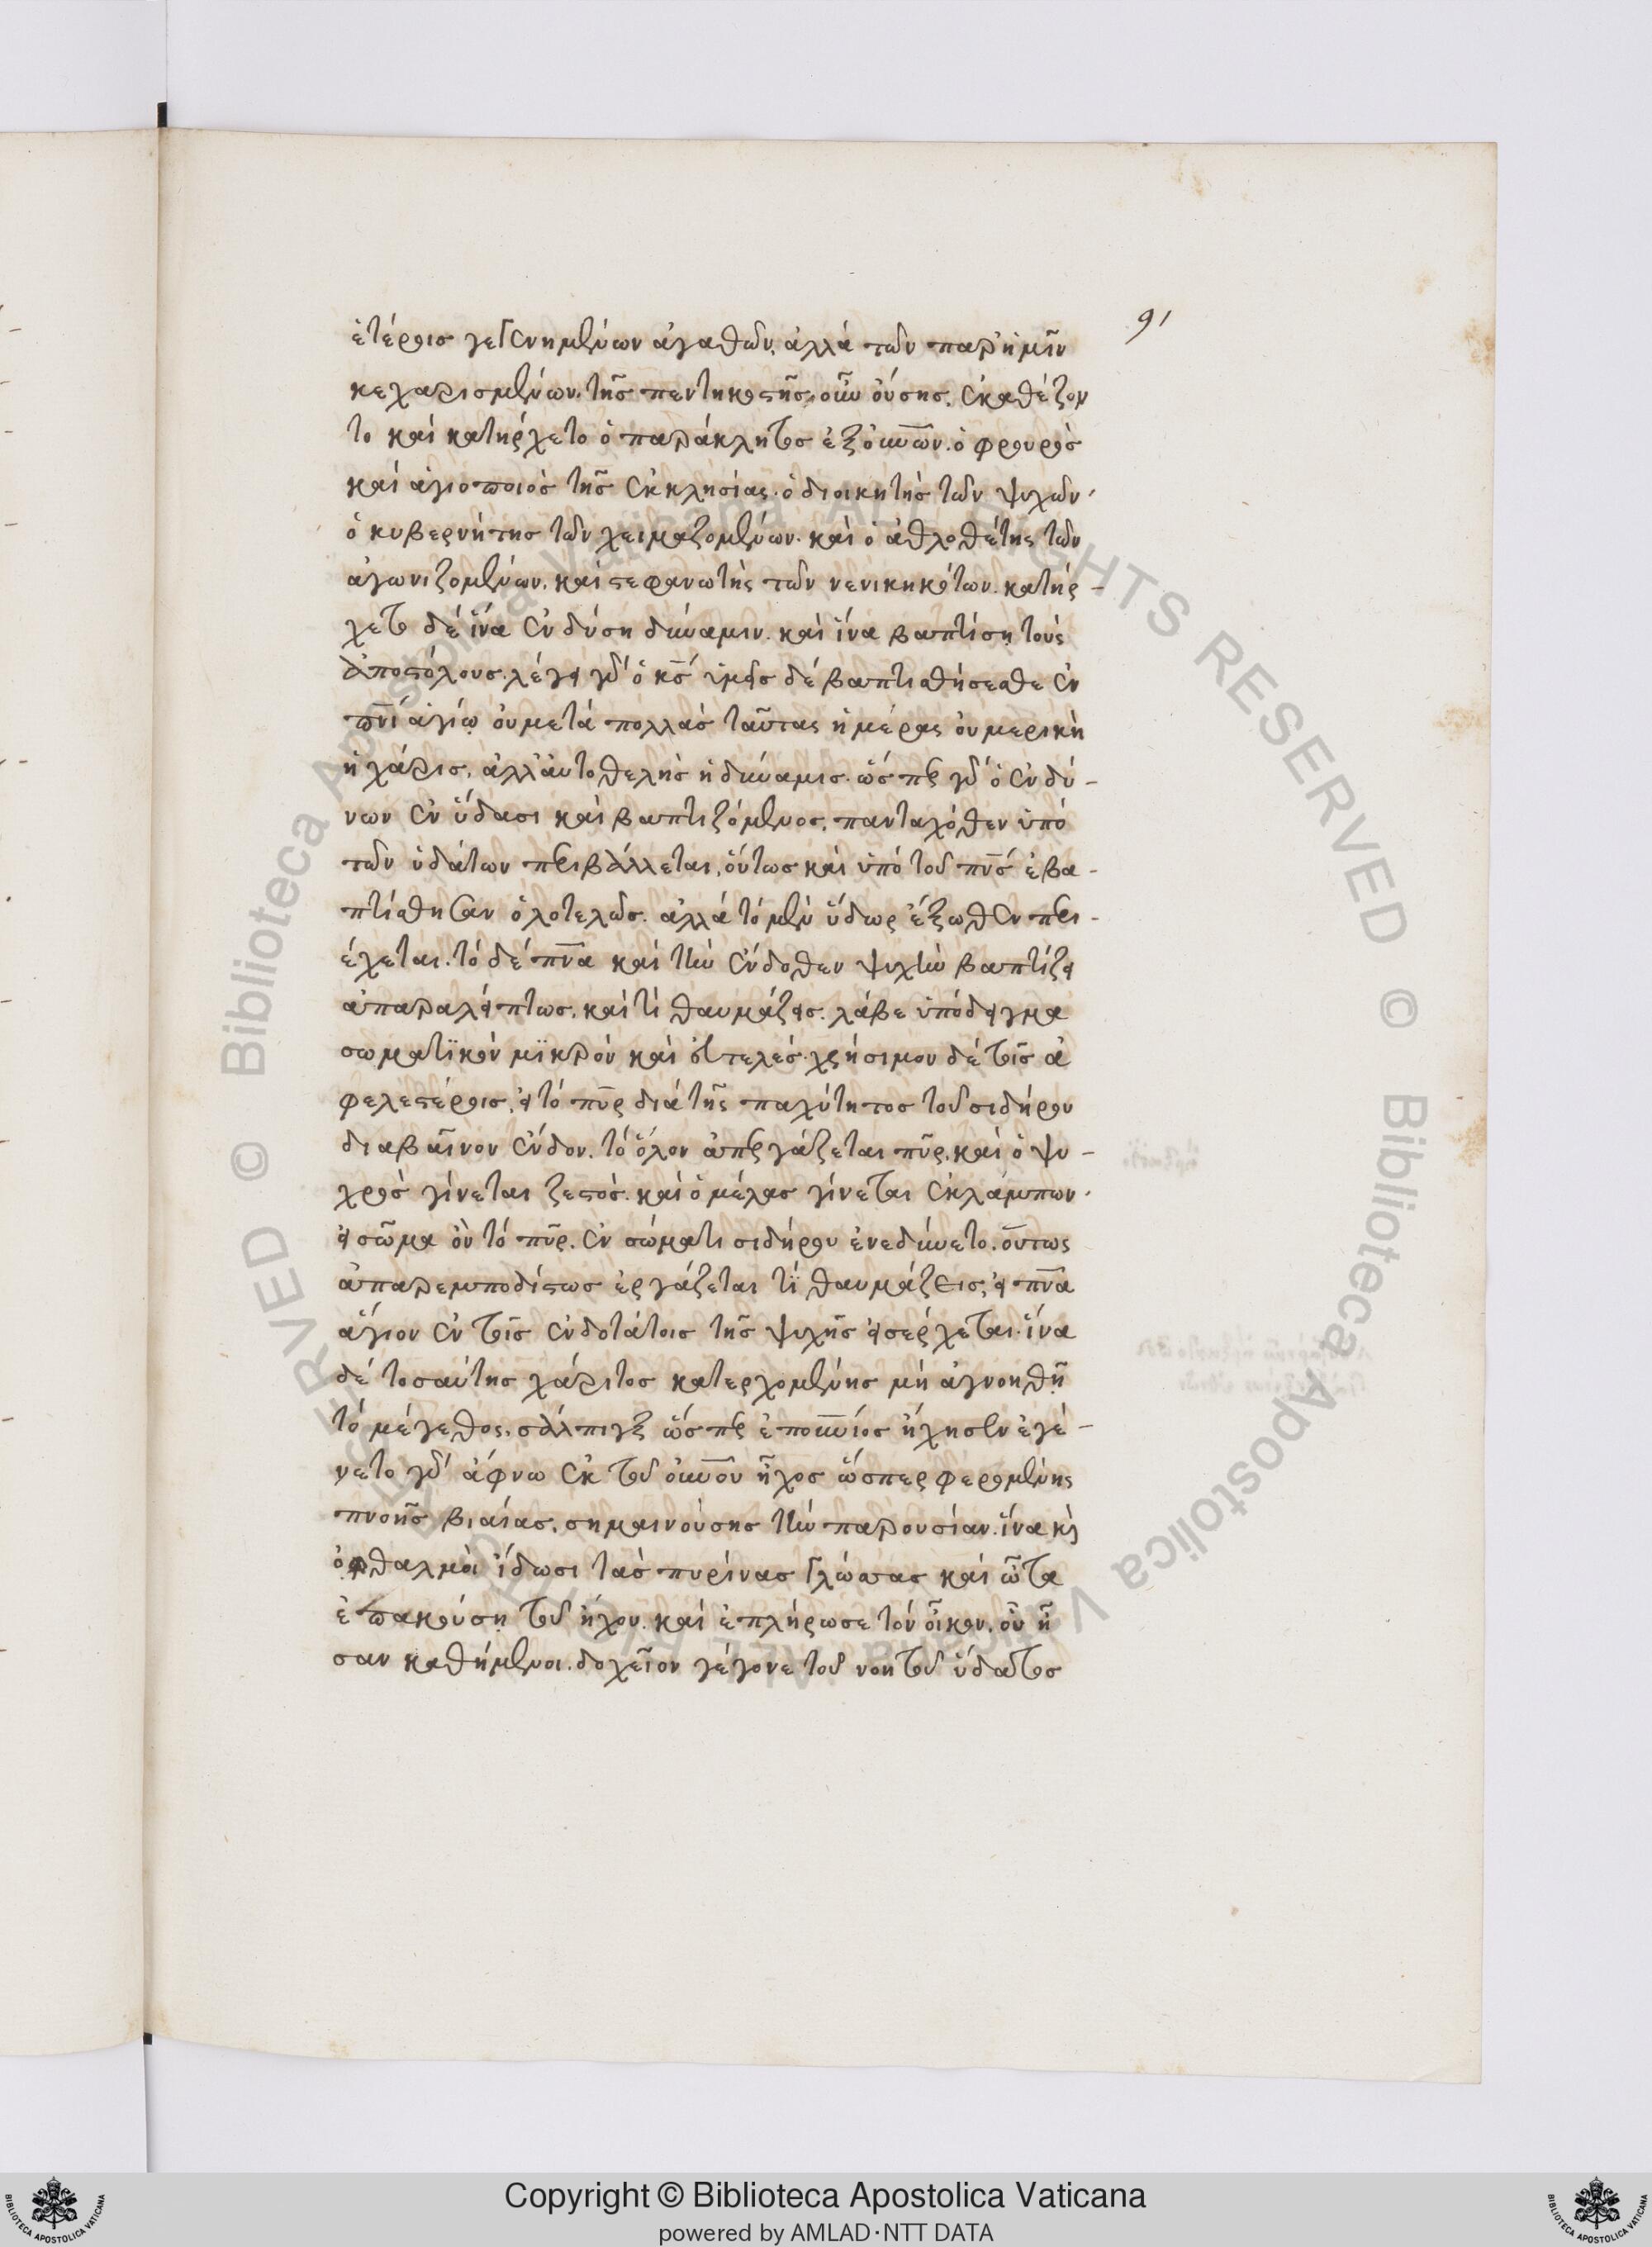 91
ἑτέροις γεγενημένων ἀγαθῶν. ἀλλὰ τῶν παρ' ἡμῖν
κεχαρισμένων. τῆς πεντηκοστῆς οὖν οὔσης. ἐκαθέζον
το καὶ κατήρχετο ὁ παράκλητος ἐξ οὐνῶν. ὁ φρουρὸς
καὶ ἁγιοποιὸς τῆς ἐκκλησίας. ὁ διοικητὴς τῶν ψυχῶν.
ὁ κυβερνήτης τῶν χειμαζομένων. καὶ ὁ ἀθλοθέτης τῶν
ἀγωνιζομένων. καὶ στεφανωτὴς τῶν νενικηκότων. κατήρ-
χετο δὲ ἵνα ἐνδύση δύναμιν. καὶ ἵνα βαπτίση τοὺς
ἀποστόλους. λέγει γὰρ ὁ κς ὑμεῖς δὲ βαπτισθήσεσθε ἐν
πνι ἁγίω οὐ μετὰ πολλὰς ταύτας ἡμέρας οὐ μερικὴ
ἡ χάρις. ἀλλ' αὐτοθελὴς ἡ δύναμις. ὥσπερ γὰρ ὁ ἐνδύ-
νων ἐν ὕδασι καὶ βαπτιζόμενος. πανταχόθεν ὑπὸ
τῶν ὑδάτων περιβάλλεται. οὕτως καὶ ὑπὸ τοῦ πνς ἐβα-
πτίσθησαν ὁλοτελῶς. ἀλλὰ τὸ μὲν ὕδωρ ἔξωθεν περι-
έχεται. τὸ δὲ πνα καὶ τὴν ἔνδοθεν ψυχὴν βαπτίζει
ἀπαραλείπτως. καὶ τί θαυμάζεις. λάβε ὑπόδειγμα
σωματϊκὸν μϊκρὸν καὶ εὐτελές. χρήσιμον δὲ τοῖς ἀ
φελεστέροις. εἰ τὸ πῦρ διὰ τῆς παχύτητος τοῦ σιδήρου
διαβαῖνον ἔνδον. τὸ ὅλον ἀπεργάζεται πῦρ. καὶ ὁ ψυ-
χρὸς γίνεται ζεστός. καὶ ὁ μέλας γίνεται ἐκλάμπων.
εἰ σῶμα ὂν τὸ πῦρ. ἐν σώματι σιδήρου ἐνεδύνετο. οὕτως
ἀπαρεμποδίστως ἐργάζεται τϊ θαυμάζεις, εἰ πνα
ἅγιον ἐν τοῖς ἐνδοτάτοις τῆς ψυχῆς εἰσέρχεται. ἵνα
δὲ τοσαύτης χάριτος κατερχομένης μὴ ἀγνοηθῆ
τὸ μέγεθος. σάλπιγξ ὥσπερ ἐπουνίος ἤχησεν ἐγέ-
νετο γὰρ ἄφνω ἐκ τοῦ οὐνοῦ ἦχος ὥσπερ φερομένης
πνοῆς βιαίας. σημαινούσης τὴν παρουσίαν. ἵνα καὶ
ὀφθαλμοὶ ἴδωσι τὰς πυρίνας γλώσσας καὶ ὦτα
ἐπακούση τοῦ ἤχου. καὶ ἐπλήρωσε τὸν οἶκον. οὗ ἦ
σαν καθήμενοι. δοχεῖον γέγονε τοῦ νοητοῦ ὕδατος
© Biblioteca Apostolica Vaticana ALL RIGHTS RESERVED © Biblioteca Apostolica Vaticana ALL RIGHTS RESERVED
Copyright © Biblioteca Apostolica Vaticana
powered by AMLAD·NTT DATA
BIBLIOTECA APOSTOLICA VATICANA
BIBLIOTECA APOSTOLICA VATICANA